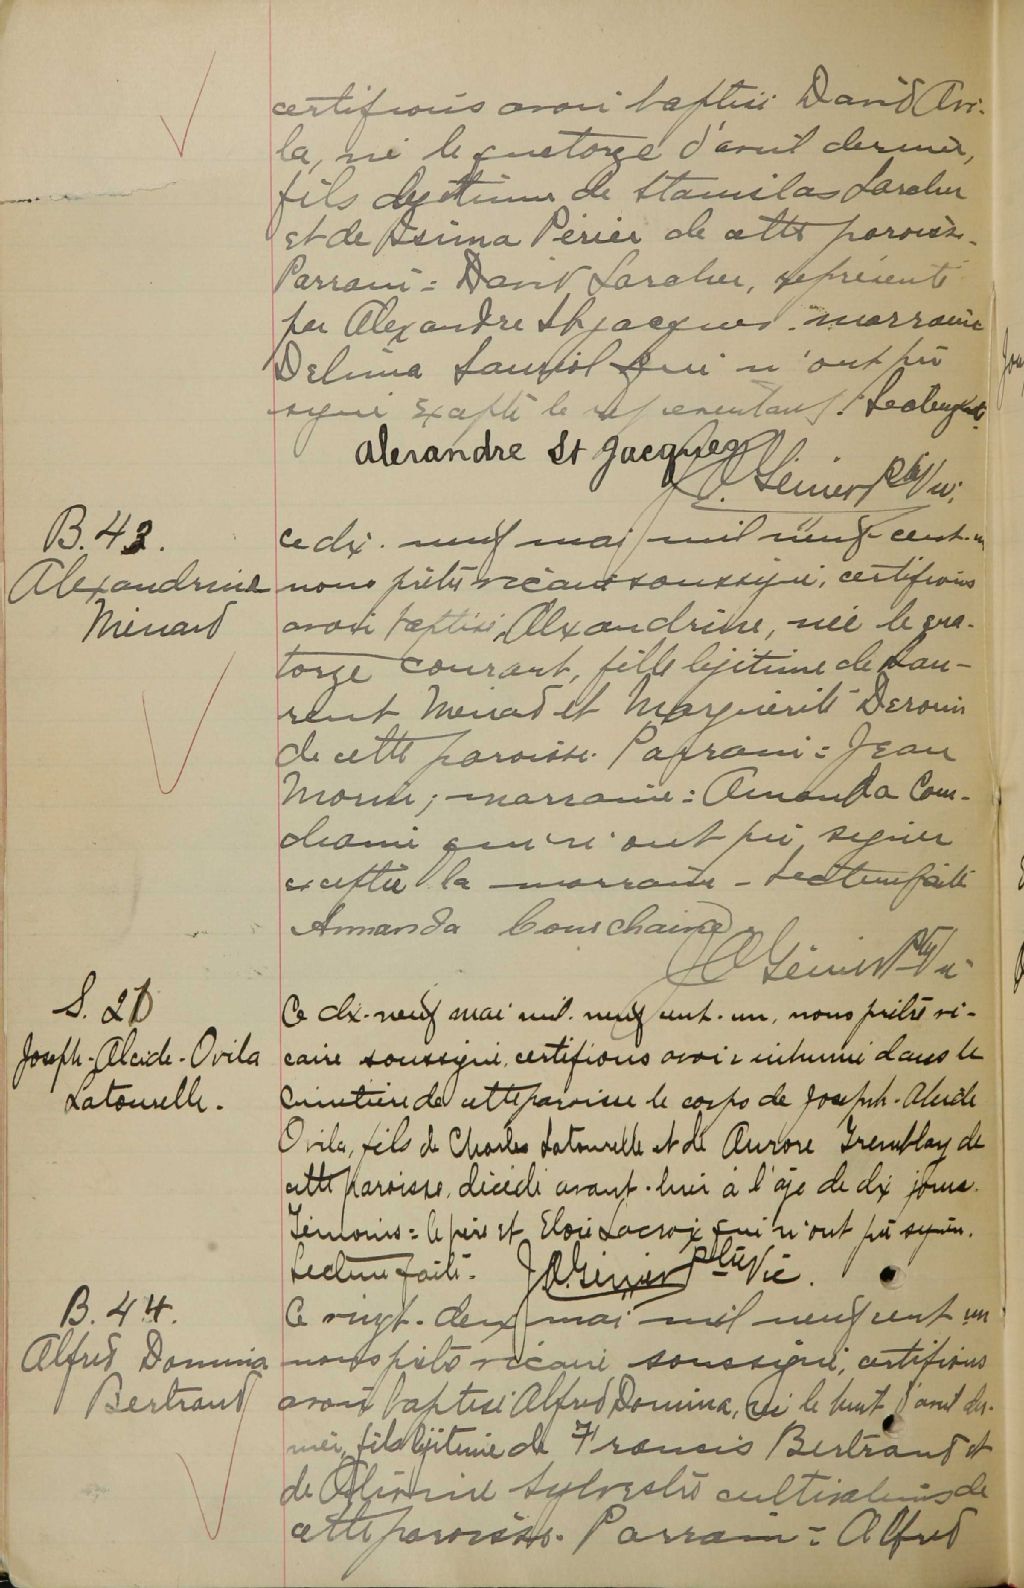 certifions avoir baptisé David Avi-
la, né le quatorze d'avril dernier,
fils légitime de Stanislas Larcher
et de Exima Périer de cette paroisse.
Parrain = David Larcher, représenté
par Alexandre St Jacques. marraine
Delima Sauriol qui n'ont pu
signer excepté le représentant. Lecture faite.
Alexandre St Jacques
J.O. Génier Ptre Vic.
B. 43.
Alexandrine
Ménard
ce dix-neuf mai mil neuf-cent-un
nous prêtre vicaire soussigné, certifions
avoir baptisé, Alexandrine, née le qua-
torze courant, fille légitime de Lau-
rent Ménard et Marguerite Derouin
de cette paroisse. Parrain = Jean
Morin; marraine = Amanda Cour-
chaine qui n'ont pu signer
exceptée la marraine - Lecture faite
Amanda Courchaine
J.O. Génier Ptre Vic
S. 20
Joseph-Alcide-Ovila
Latourelle.
Ce dix-neuf mai mil-neuf cent-un, nous prêtre vi-
caire soussigné, certifions avoir inhumé dans le
Cimetière de cette paroisse le corps de Joseph-Alcide
Ovila, fils de Charles Latourelle et de Aurore Tremblay de
cette paroisse, décédé avant-hier à l'âge de dix jours.
Témoins = le père et Eloïe Lacroix qui n'ont pu signer.
Lecture faite. J.O. Génier Ptre Vic.
B. 44.
Alfred Domina
Bertrand
Ce vingt-deux mai mil neuf cent un
nous prêtre vicaire soussigné, certifions
avoir baptisé Alfred Domina, né le huit d'avril der-
nier, fils légitime de Francis Bertrand et
de Alivine Sylvestre cultivateurs de
cette paroisse. Parrain = Alfred